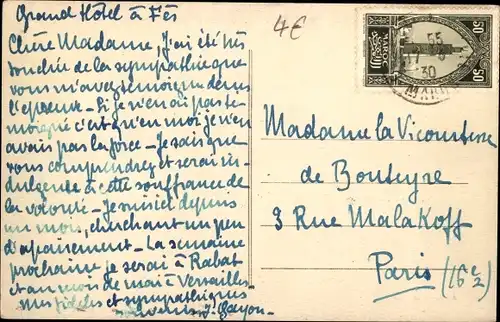 Grand Hôtel à Fès
Chère Madame, J'ai été très
touchée de la sympathie que
vous m'avez témoignée dans
l'épreuve - Si je n'en ai pas té-
moigné c'est qu'en moi je n'en
avais pas la force - Je sais que
vous comprendrez et serez in-
dulgente à cette souffrance de
la volonté - Je suis ici depuis
un mois, cherchant un peu
d'apaisement - La semaine
prochaine je serai à Rabat
et au mois de mai à Versailles -
Mes fidèles et sympathiques
souvenirs J.
4€
MAROC
50 50
55
17
30
Madame la Vicomtesse
de Bouteyre
9 Rue Malakoff
Paris (16e)